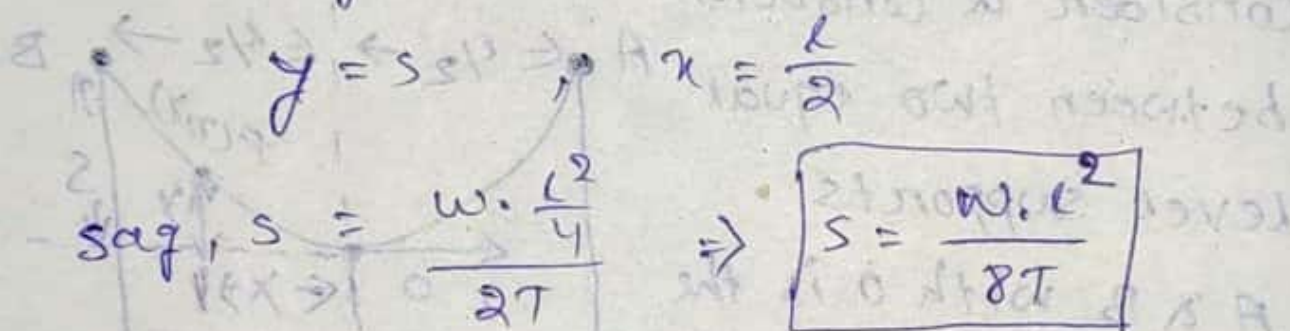 y = s x = l/2
sag, s = w. l²/4 / 2T => s = w. l² / 8T